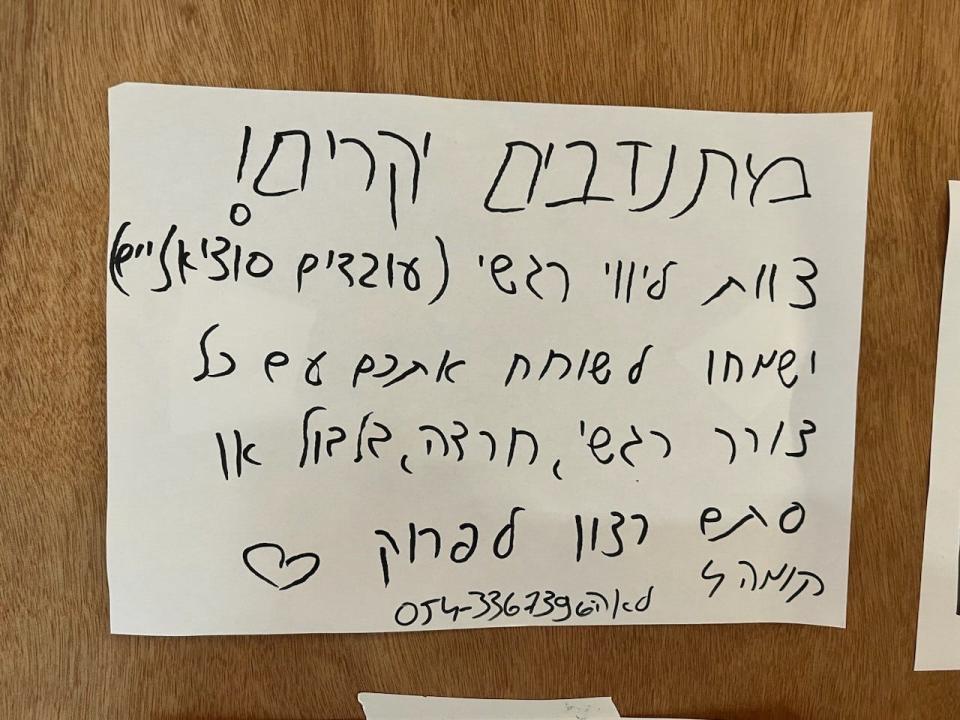 מתנדבים יקרים!
צוות ליווי רגשי (עובדים סוציאליים)
ישמחו לשוחח אתכם עם כל
צורך רגשי, חרדה, בלבול או
סתם רצון לפרוק ♡
קומה
לאה 054-3367396